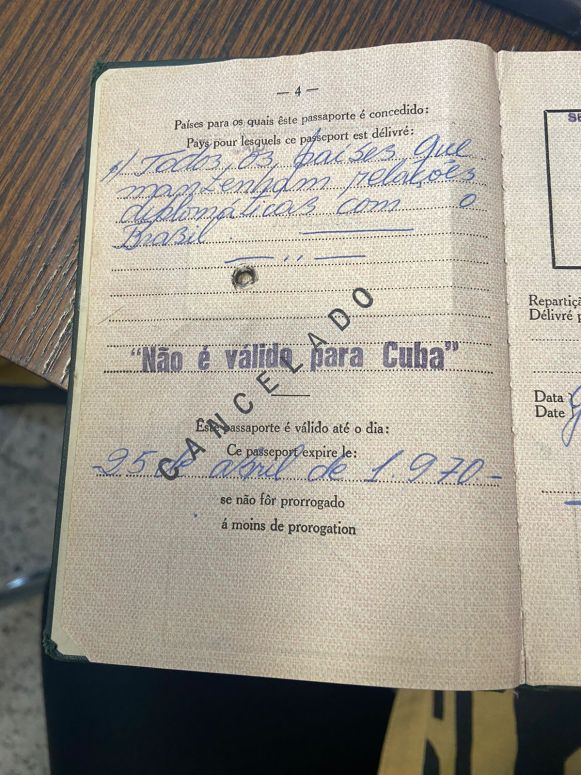 — 4 —
Países para os quais êste passaporte é concedido:
Pays pour lesquels ce passeport est délivré:
p/ Todos os países que
mantenham relações
diplomáticas com o
Brasil.
"Não é válido para Cuba"
CANCELADO
Êste passaporte é válido até o dia:
Ce passeport expire le:
-25 de abril de 1.970-
se não fôr prorrogado
á moins de prorogation
SE
Repartiçã
Délivré p
Data
Date